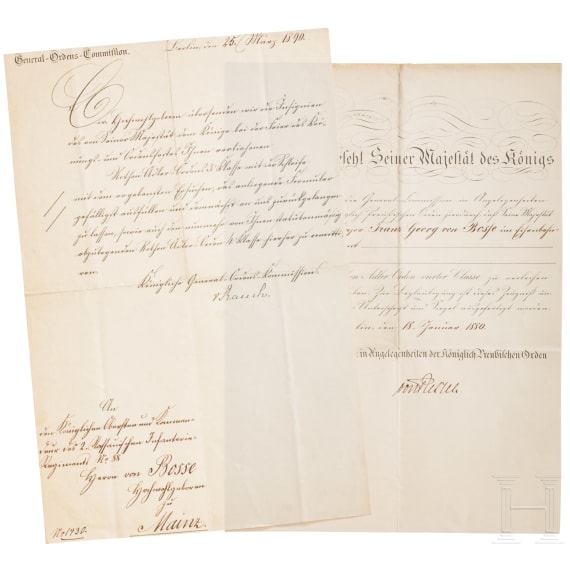 General-Ordens-Commission.
Berlin, den 25. März 1890.
Ew. Hochwohlgeboren übersenden wir die Insignien
des von Seiner Majestät dem Könige bei der Feier des Krö-
nungs- und Ordensfestes Ihnen verliehenen
Rothen Adler-Ordens 3. Klasse mit der Schleife
mit dem ergebensten Ersuchen, das anliegende Formular
gefälligst ausfüllen und demnächst an uns zurückgelangen
zu lassen, sowie auch den nunmehr von Ihnen statutenmäßig
abzulegenden Rothen Adler-Orden 4. Klasse hierher zu remitti-
ren.
Königliche General-Ordens-Kommission.
v. Rauch.
An
den Königlichen Obersten und Komman-
deur des 2. Nassauischen Infanterie-
Regiments No 88
Herrn von Bosse
Hochwohlgeboren
zu
Mainz.
No 1730.
fehl Seiner Majestät des Königs
die General-Commission in Angelegenheiten
Seine Majestät
Franz Georg von Bosse im Eisenbahn-
Adler Orden vierter Classe zu verleihen
Zur Beglaubigung ist dieses Zeugniß
Unterschrift und Siegel ausgefertigt worden.
den 18. Januar 1880.
in Angelegenheiten der Königlich Preußischen Orden
H